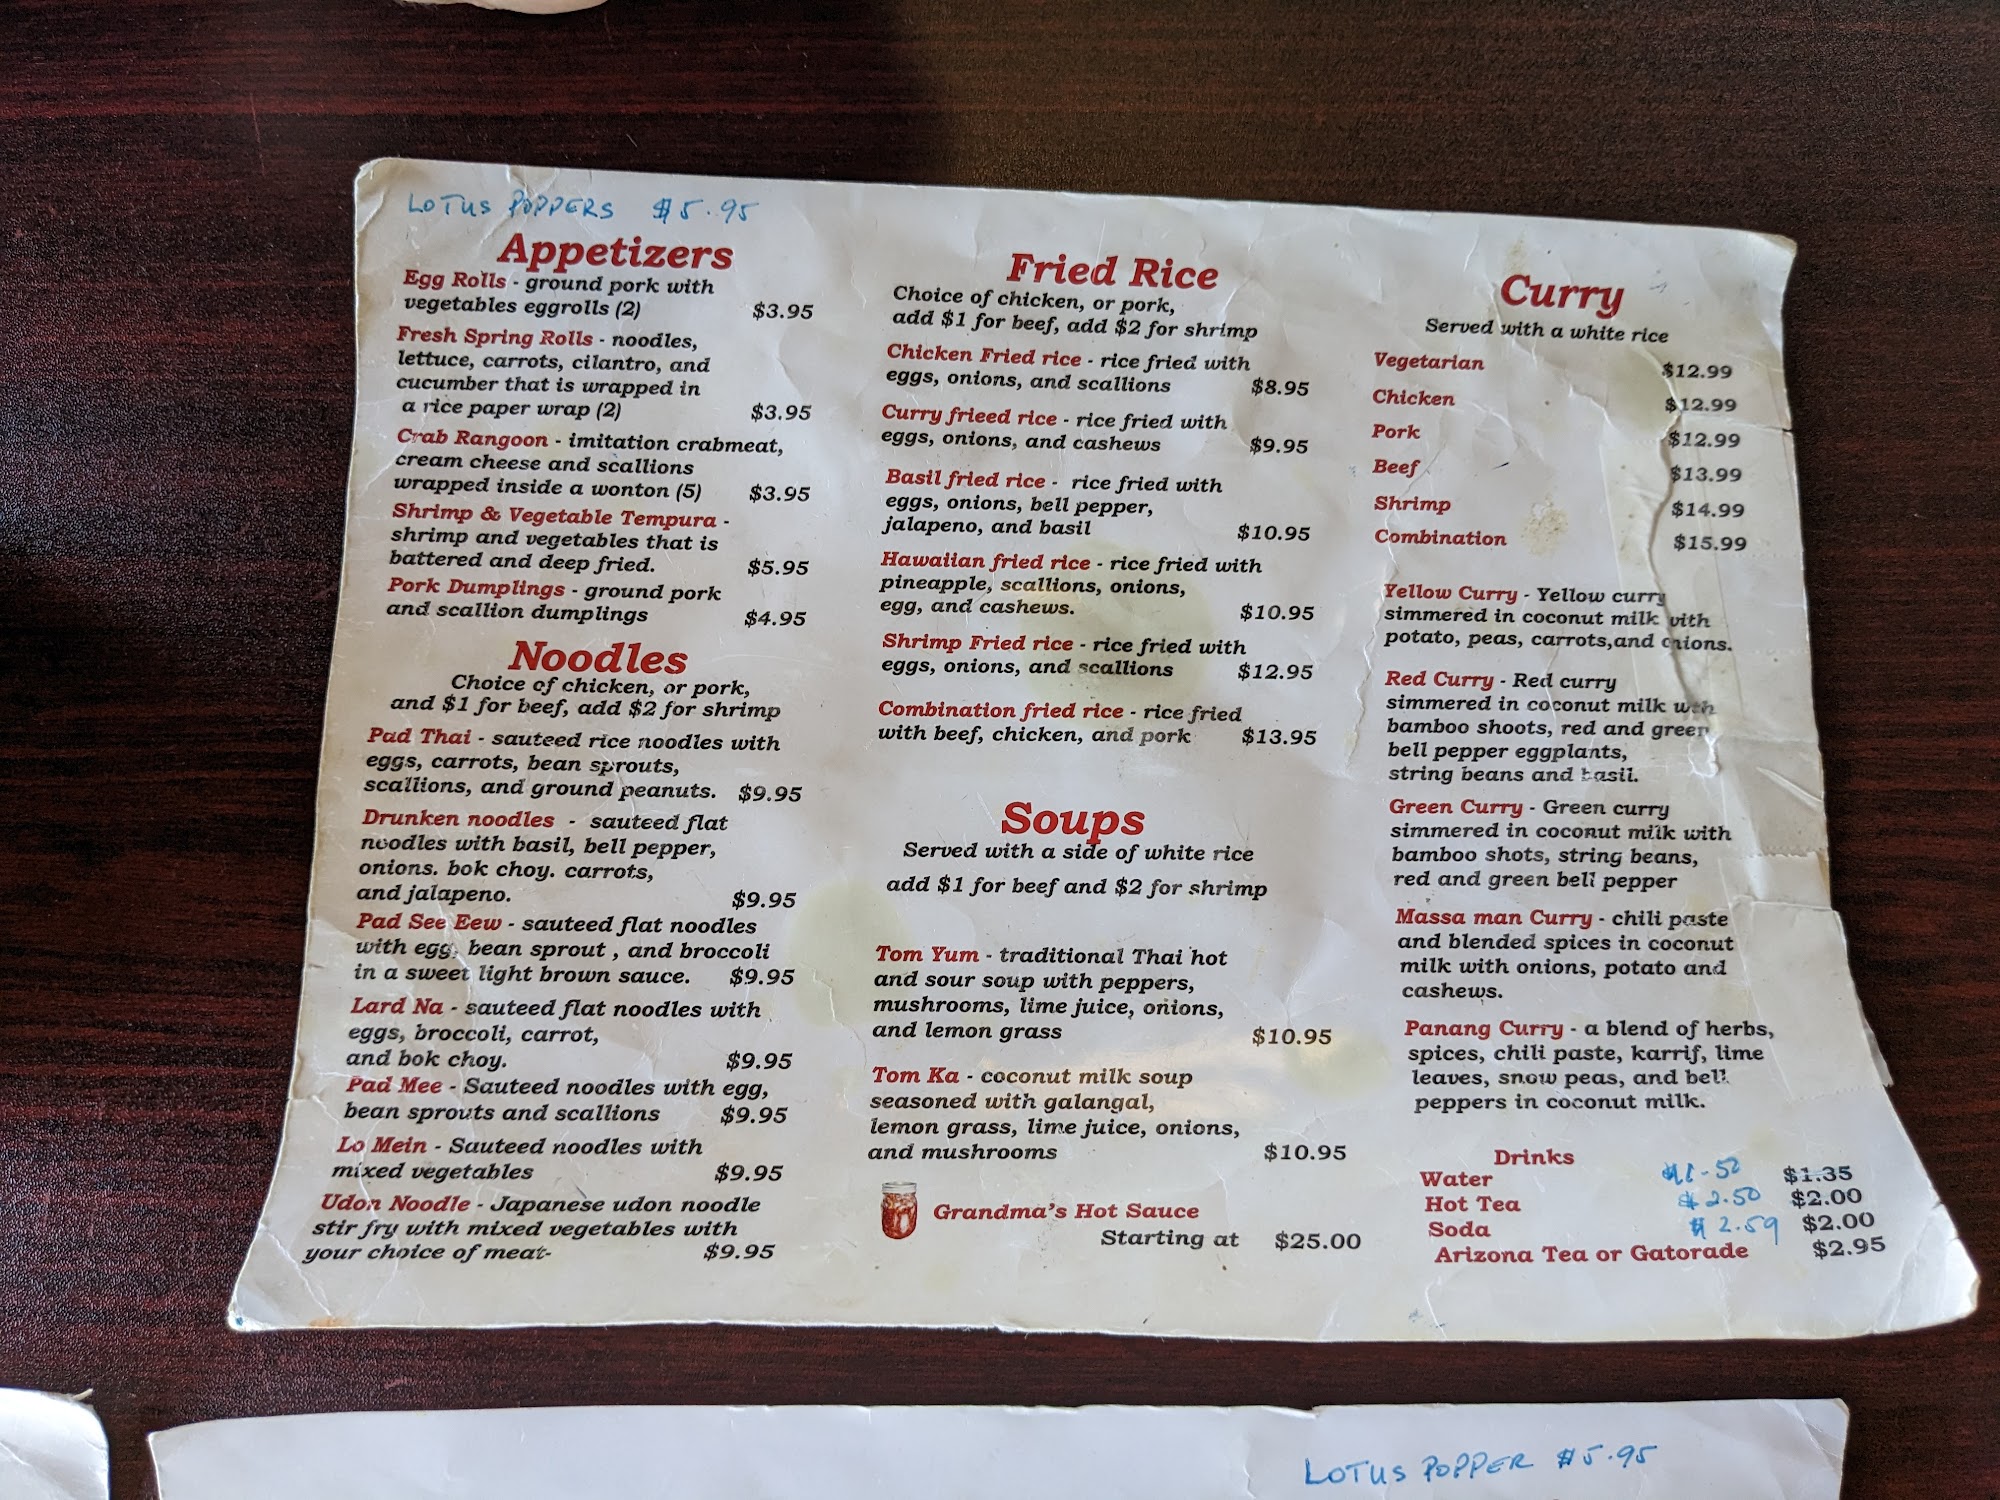 LOTUS POPPERS $5.95
Appetizers
Egg Rolls - ground pork with
vegetables eggrolls (2) $3.95
Fresh Spring Rolls - noodles,
lettuce, carrots, cilantro, and
cucumber that is wrapped in
a rice paper wrap (2) $3.95
Crab Rangoon - imitation crabmeat,
cream cheese and scallions
wrapped inside a wonton (5) $3.95
Shrimp & Vegetable Tempura -
shrimp and vegetables that is
battered and deep fried. $5.95
Pork Dumplings - ground pork
and scallion dumplings $4.95
Noodles
Choice of chicken, or pork,
and $1 for beef, add $2 for shrimp
Pad Thai - sauteed rice noodles with
eggs, carrots, bean sprouts,
scallions, and ground peanuts. $9.95
Drunken noodles - sauteed flat
noodles with basil, bell pepper,
onions. bok choy. carrots,
and jalapeno. $9.95
Pad See Eew - sauteed flat noodles
with egg, bean sprout , and broccoli
in a sweet light brown sauce. $9.95
Lard Na - sauteed flat noodles with
eggs, broccoli, carrot,
and bok choy. $9.95
Pad Mee - Sauteed noodles with egg,
bean sprouts and scallions $9.95
Lo Mein - Sauteed noodles with
mixed vegetables $9.95
Udon Noodle - Japanese udon noodle
stir fry with mixed vegetables with
your choice of meat- $9.95
Fried Rice
Choice of chicken, or pork,
add $1 for beef, add $2 for shrimp
Chicken Fried rice - rice fried with
eggs, onions, and scallions $8.95
Curry frieed rice - rice fried with
eggs, onions, and cashews $9.95
Basil fried rice - rice fried with
eggs, onions, bell pepper,
jalapeno, and basil $10.95
Hawaiian fried rice - rice fried with
pineapple, scallions, onions,
egg, and cashews. $10.95
Shrimp Fried rice - rice fried with
eggs, onions, and scallions $12.95
Combination fried rice - rice fried
with beef, chicken, and pork $13.95
Soups
Served with a side of white rice
add $1 for beef and $2 for shrimp
Tom Yum - traditional Thai hot
and sour soup with peppers,
mushrooms, lime juice, onions,
and lemon grass $10.95
Tom Ka - coconut milk soup
seasoned with galangal,
lemon grass, lime juice, onions,
and mushrooms $10.95
Grandma's Hot Sauce
Starting at $25.00
Curry
Served with a white rice
Vegetarian $12.99
Chicken $12.99
Pork $12.99
Beef $13.99
Shrimp $14.99
Combination $15.99
Yellow Curry - Yellow curry
simmered in coconut milk with
potato, peas, carrots,and onions.
Red Curry - Red curry
simmered in coconut milk with
bamboo shoots, red and green
bell pepper eggplants,
string beans and basil.
Green Curry - Green curry
simmered in coconut milk with
bamboo shots, string beans,
red and green bell pepper
Massa man Curry - chili paste
and blended spices in coconut
milk with onions, potato and
cashews.
Panang Curry - a blend of herbs,
spices, chili paste, karrif, lime
leaves, snow peas, and bell
peppers in coconut milk.
Drinks
Water $1.50 $1.35
Hot Tea $2.50 $2.00
Soda $2.59 $2.00
Arizona Tea or Gatorade $2.95
LOTUS POPPER $5.95